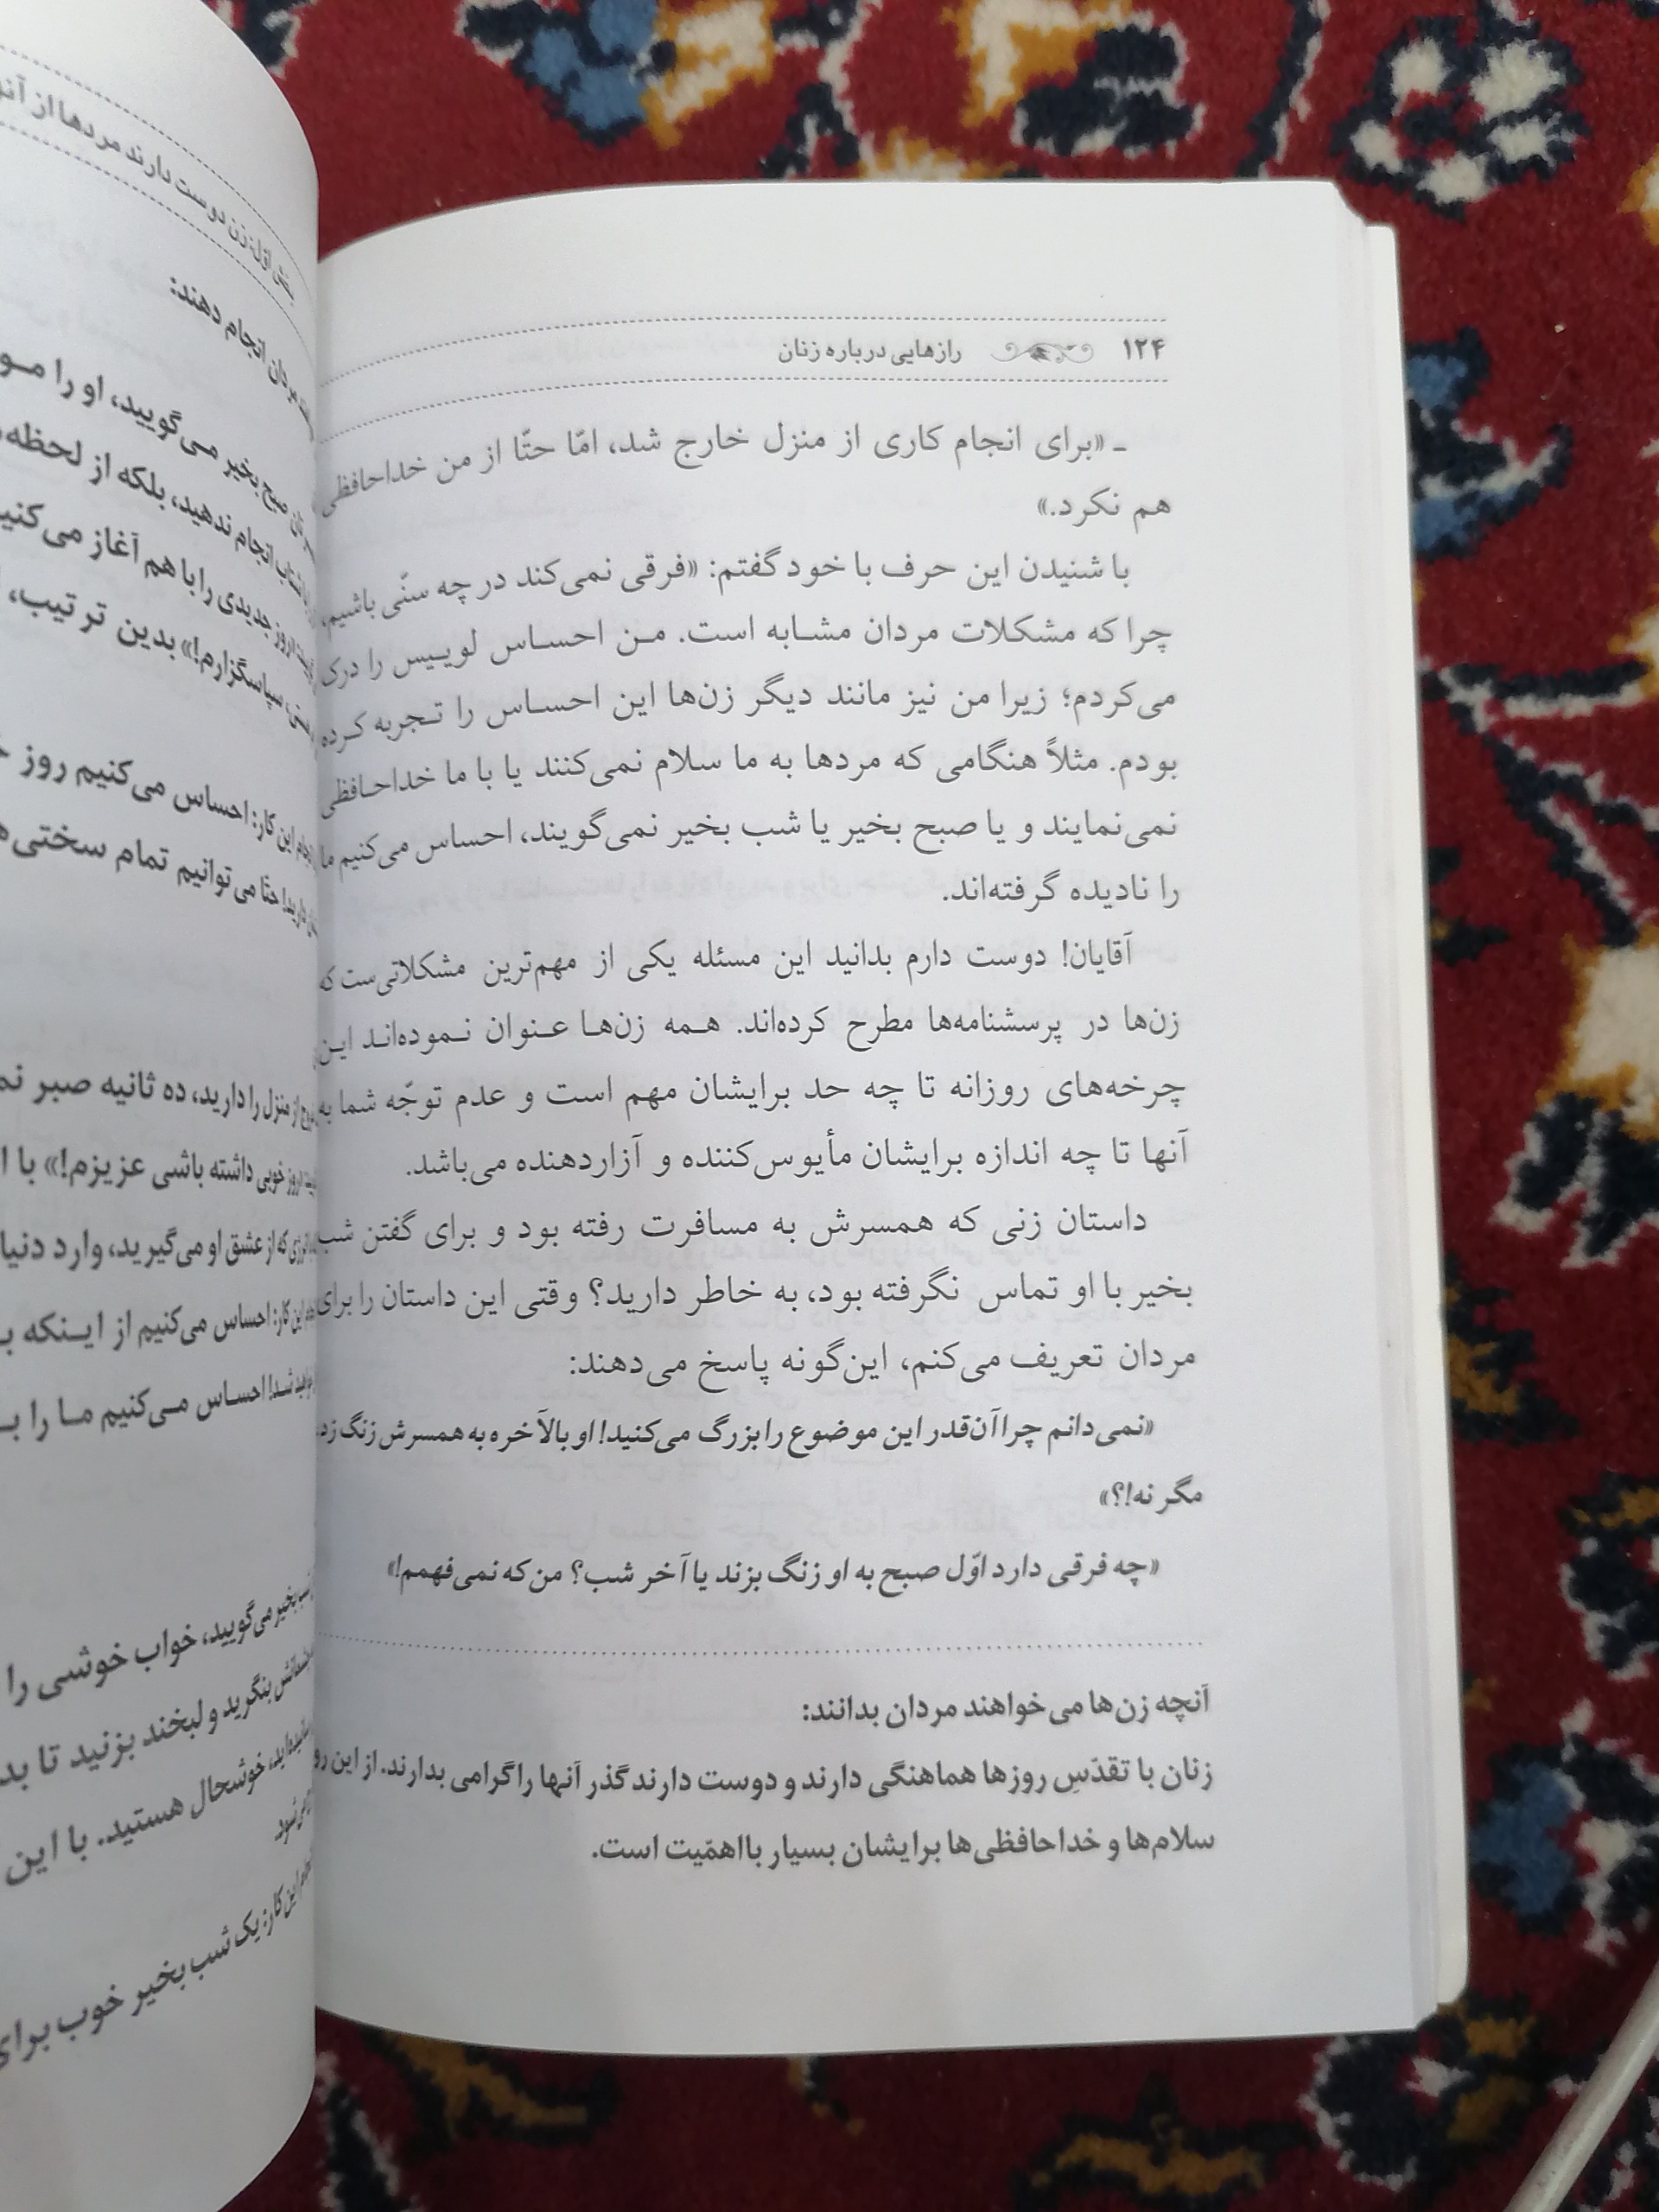 ۱۲۴ رازهایی درباره زنان
ـ «برای انجام کاری از منزل خارج شد، امّا حتّا از من خداحافظی
هم نکرد.»
با شنیدن این حرف با خود گفتم: «فرقی نمی‌کند در چه سنّی باشیم،
چرا که مشکلات مردان مشابه است. من احساس لوییس را درک
می‌کردم؛ زیرا من نیز مانند دیگر زن‌ها این احساس را تجربه کرده
بودم. مثلاً هنگامی که مردها به ما سلام نمی‌کنند یا با ما خداحافظی
نمی‌نمایند و یا صبح بخیر یا شب بخیر نمی‌گویند، احساس می‌کنیم ما
را نادیده گرفته‌اند.
آقایان! دوست دارم بدانید این مسئله یکی از مهم‌ترین مشکلاتی‌ست که
زن‌ها در پرسشنامه‌ها مطرح کرده‌اند. همه زن‌ها عنوان نموده‌اند این
چرخه‌های روزانه تا چه حد برایشان مهم است و عدم توجّه شما به
آنها تا چه اندازه برایشان مأیوس‌کننده و آزاردهنده می‌باشد.
داستان زنی که همسرش به مسافرت رفته بود و برای گفتن شب
بخیر با او تماس نگرفته بود، به خاطر دارید؟ وقتی این داستان را برای
مردان تعریف می‌کنم، این‌گونه پاسخ می‌دهند:
«نمی‌دانم چرا آن‌قدر این موضوع را بزرگ می‌کنید! او بالاَخره به همسرش زنگ زد،
مگر نه!؟»
«چه فرقی دارد اوّل صبح به او زنگ بزند یا آخر شب؟ من که نمی‌فهمم!»
آنچه زن‌ها می‌خواهند مردان بدانند:
زنان با تقدّسِ روزها هماهنگی دارند و دوست دارند گذر آنها را گرامی بدارند. از این رو
سلام‌ها و خداحافظی‌ها برایشان بسیار بااهمّیت است.
بخش اوّل: زن دوست دارند مردها از
مردان انجام دهند:
صبح بخیر می‌گویید، او را
انجام ندهید، بلکه از لحظه
روز جدیدی را با هم آغاز می‌کنیم
سپاسگزارم!» بدین ترتیب،
انجام این کار: احساس می‌کنیم روز
دارید! حتّا می‌توانیم تمام سختی
از منزل را دارید، ده ثانیه صبر
روز خوبی داشته باشی عزیزم!» با
که از عشق او می‌گیرید، وارد دنیا
این کار: احساس می‌کنیم از اینکه
شد! احساس می‌کنیم ما را
بخیر می‌گویید، خواب خوشی را
بنگرید و لبخند بزنید تا
خوشحال هستید. با این
می‌شود.
این کار: یک شب بخیر خوب برای